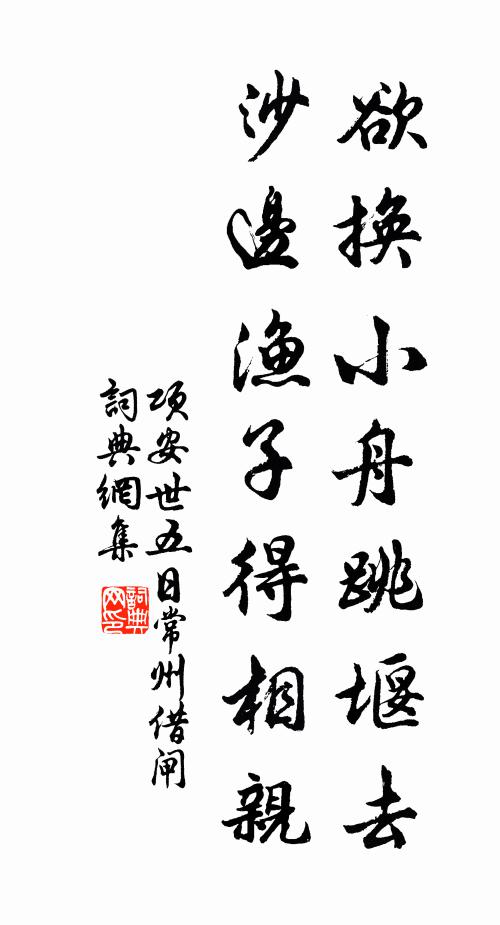 欲換小舟跳堰去
沙邊漁子得相親
項安世五日常州借閘
詞典網集
詞典网印